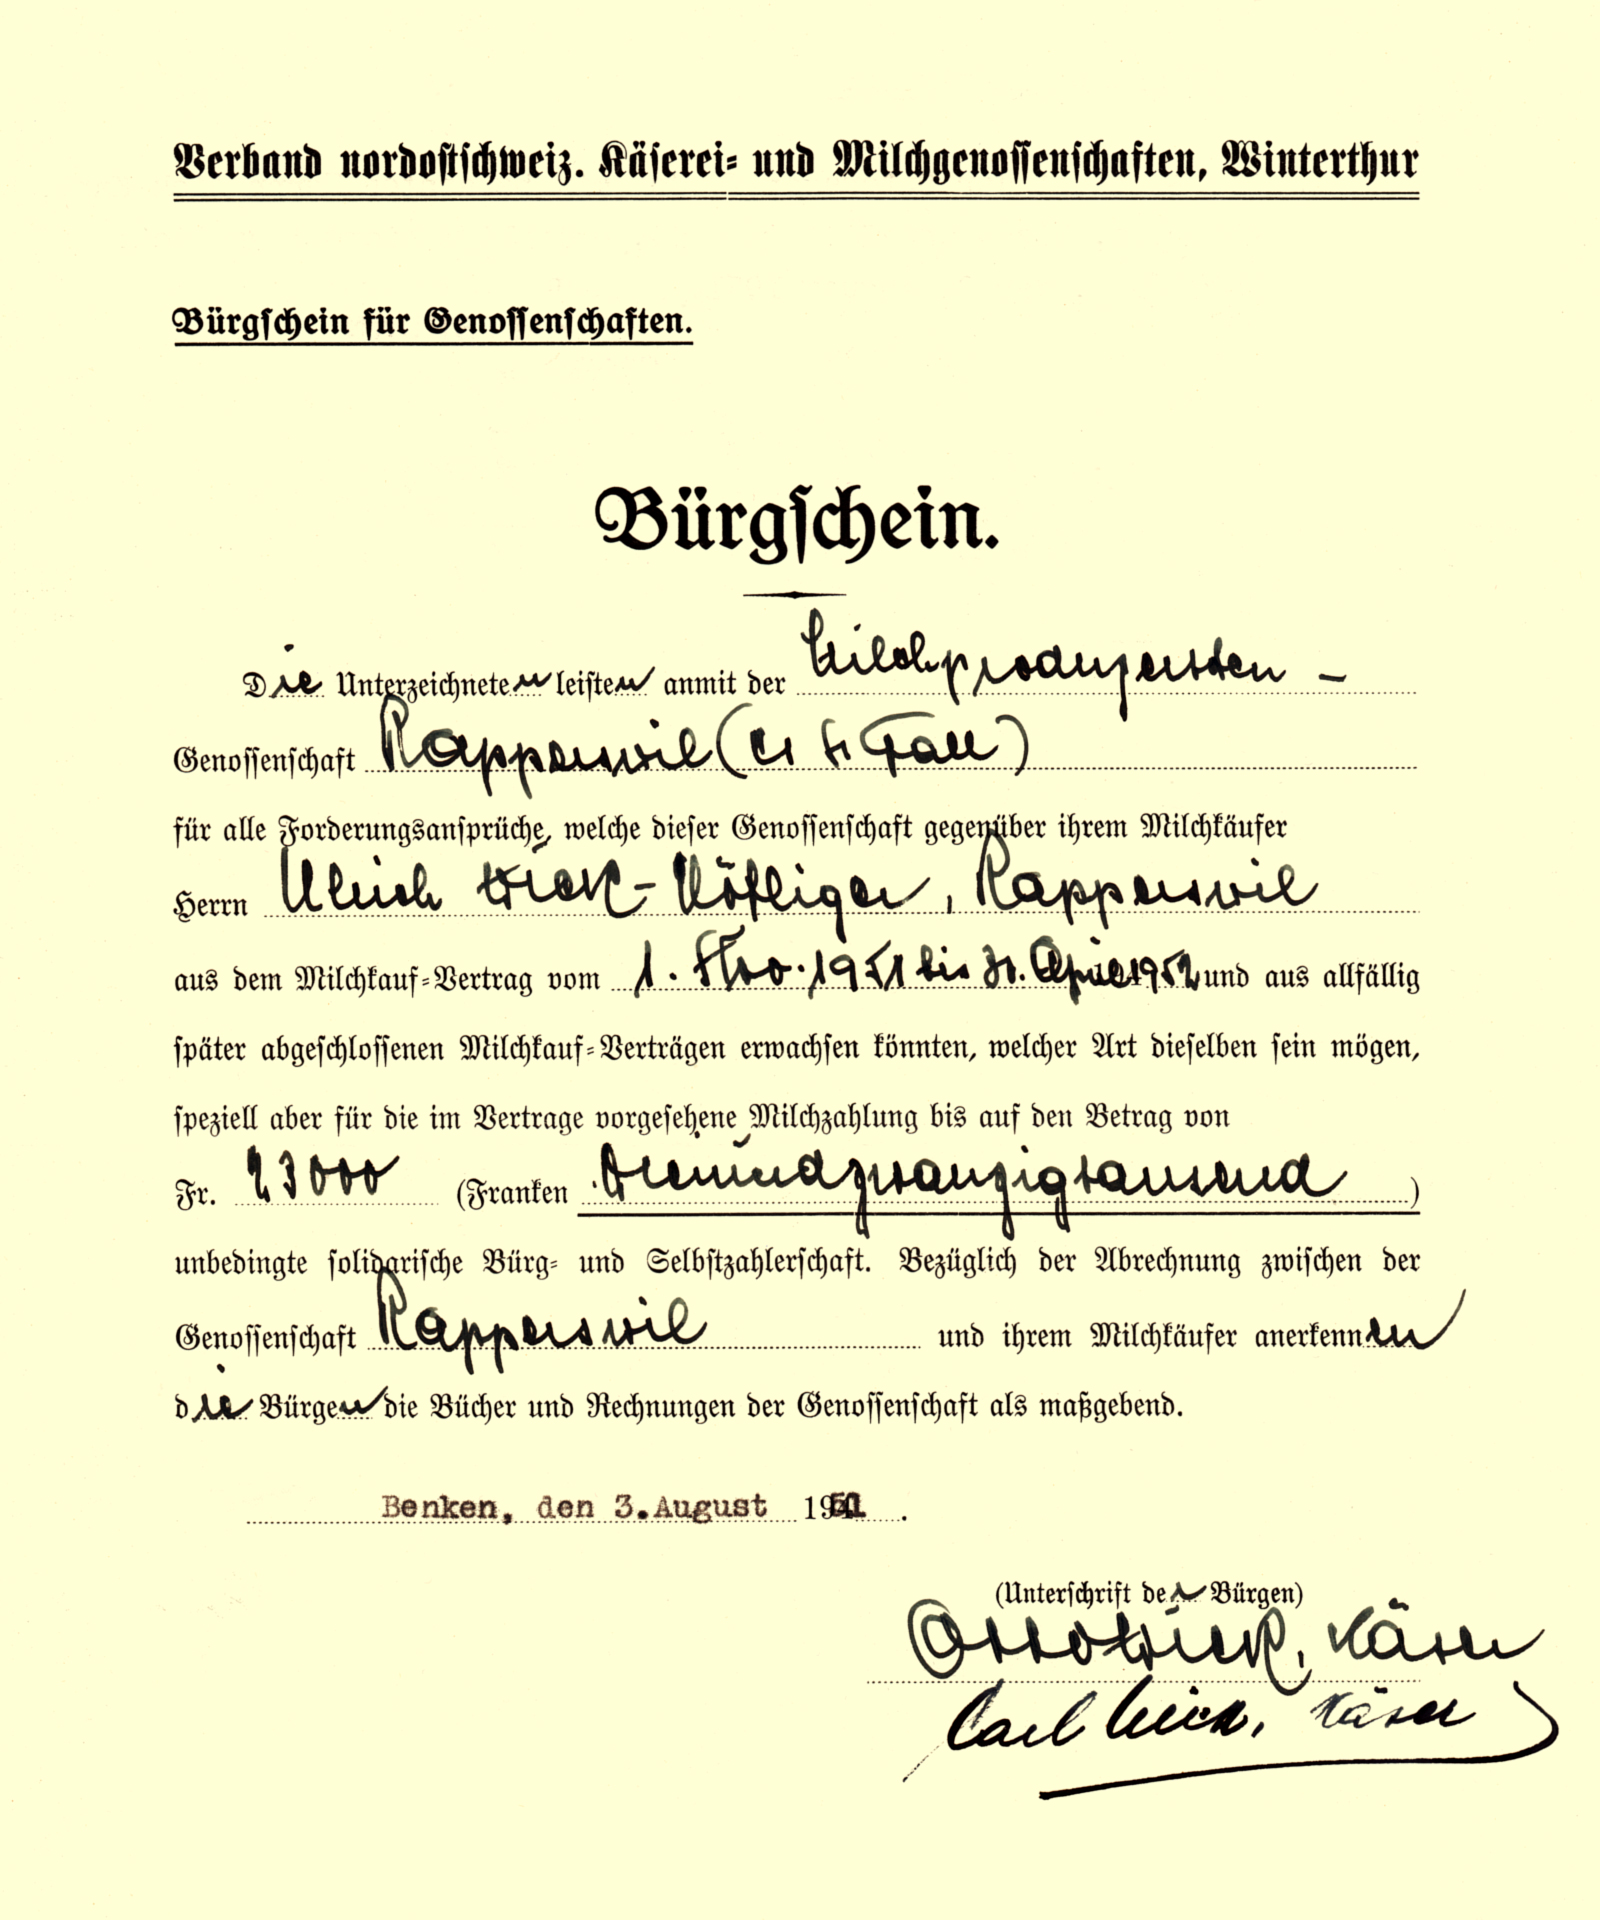 Verband nordostschweiz. Käserei- und Milchgenossenschaften, Winterthur
Bürgschein für Genossenschaften.
Bürgschein.
Die Unterzeichneten leisten anmit der Milchproduzenten-
Genossenschaft Rapperswil (Kt. St. Gall)
für alle Forderungsansprüche, welche dieser Genossenschaft gegenüber ihrem Milchkäufer
Herrn Ulrich Wick-, Rapperswil
aus dem Milchkauf-Vertrag vom 1. Nov. 1951 bis 30. April 1952 und aus allfällig
später abgeschlossenen Milchkauf-Verträgen erwachsen könnten, welcher Art dieselben sein mögen,
speziell aber für die im Vertrage vorgesehene Milchzahlung bis auf den Betrag von
Fr. 23000 (Franken Dreiundzwanzigtausend)
unbedingte solidarische Bürg- und Selbstzahlerschaft. Bezüglich der Abrechnung zwischen der
Genossenschaft Rapperswil und ihrem Milchkäufer anerkennen
die Bürgen die Bücher und Rechnungen der Genossenschaft als maßgebend.
Benken, den 3. August 1951.
(Unterschrift der Bürgen)
Otto Wick, Käser
Carl Wick, Käser